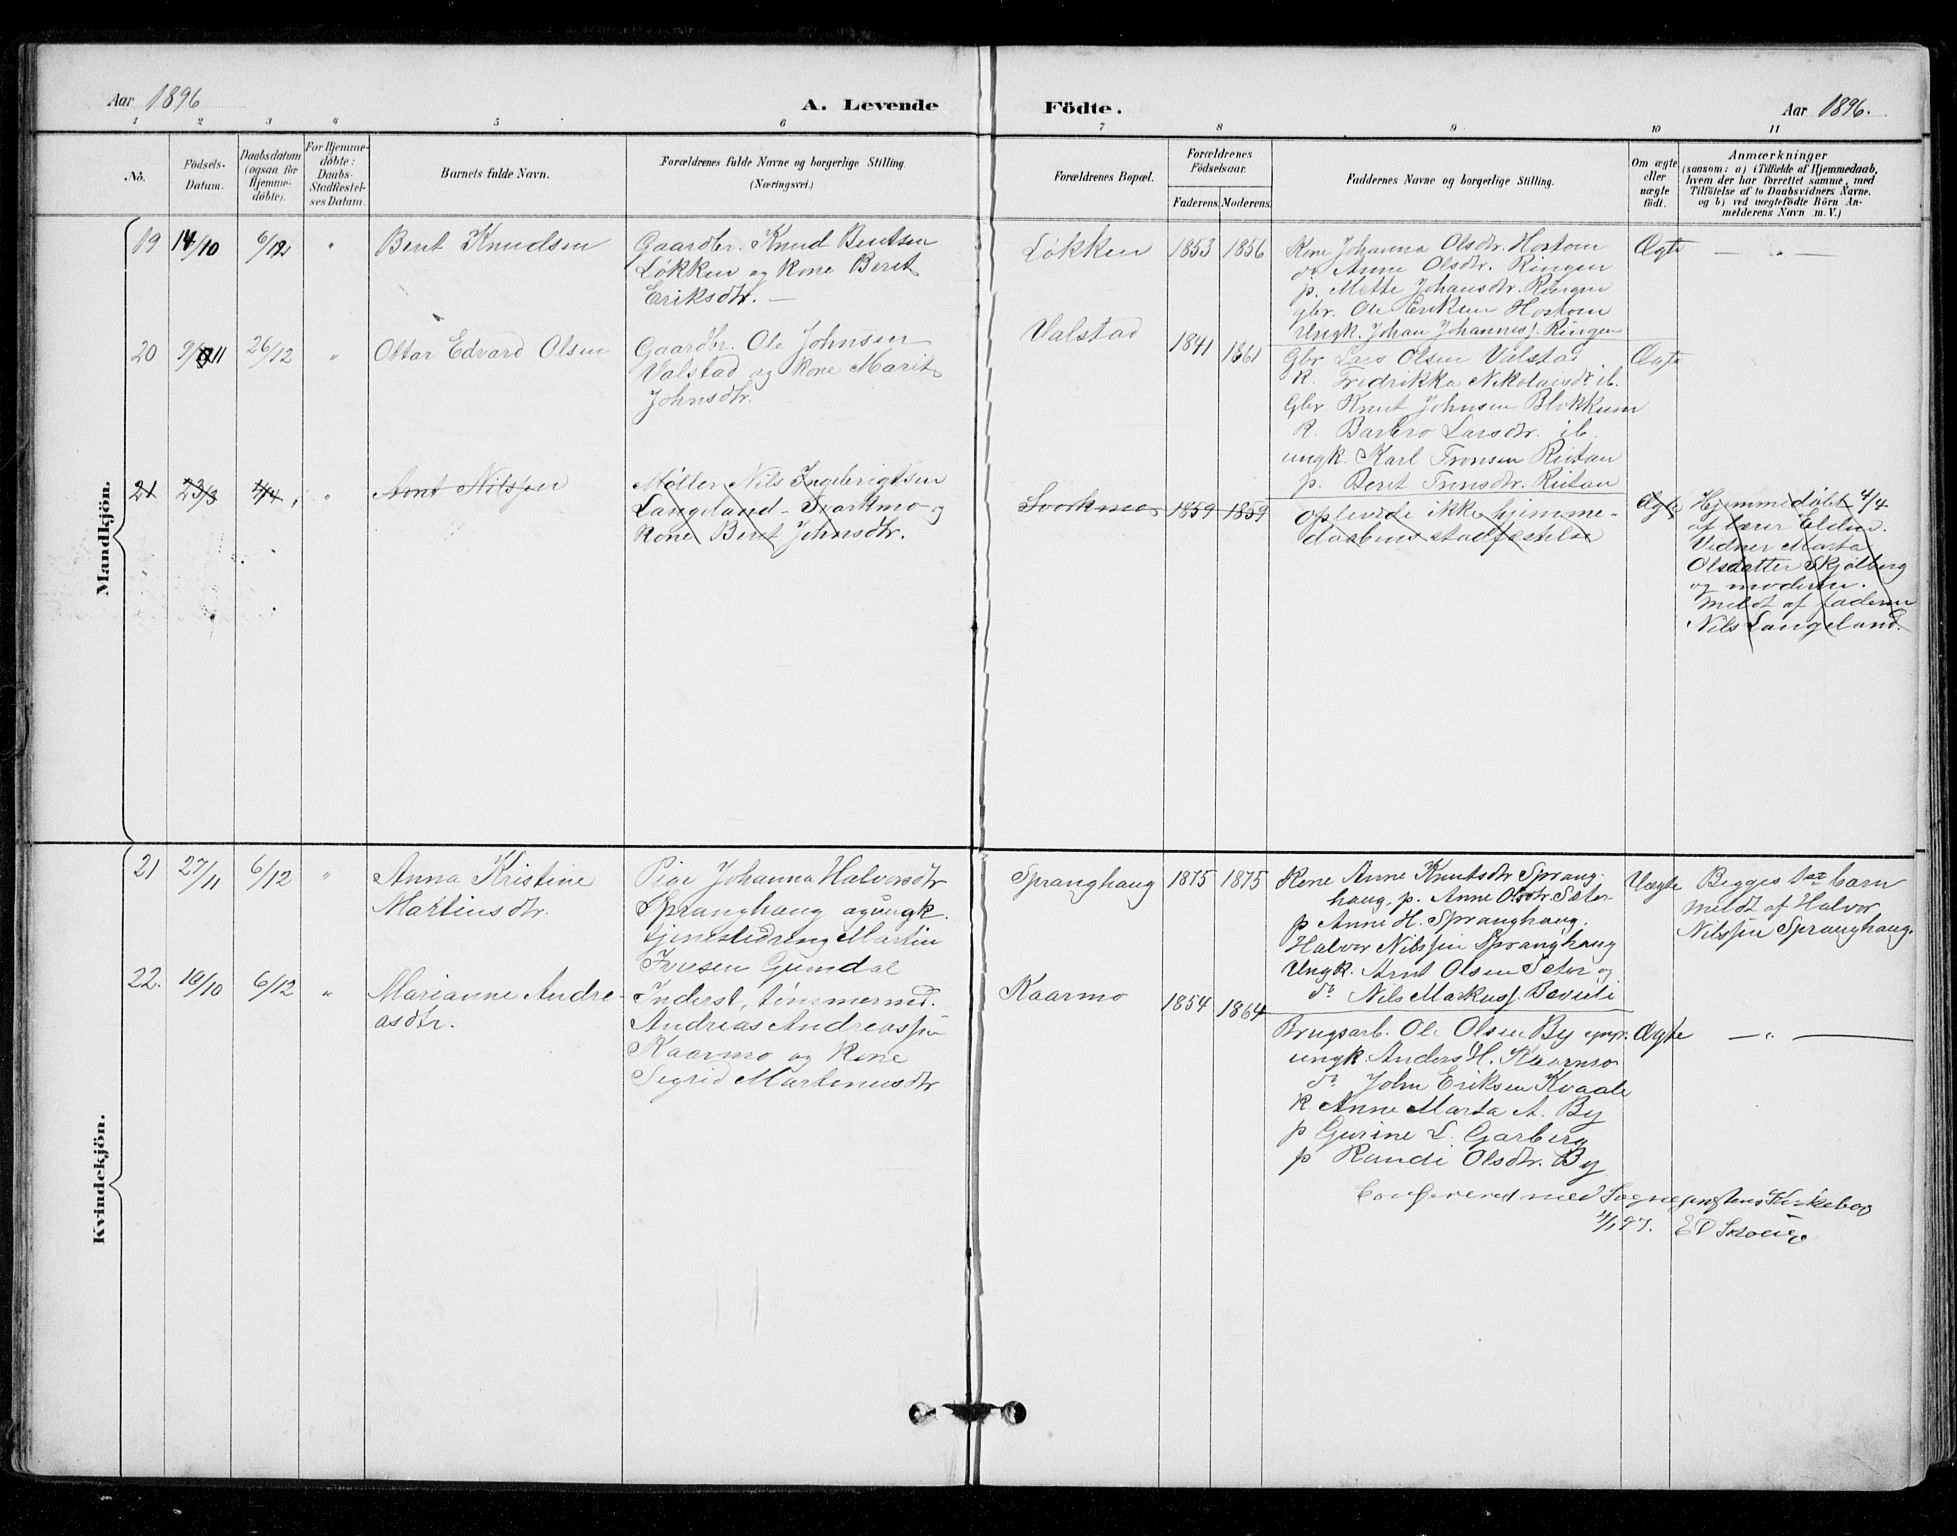 Aar 1896
A. Levende Födte.
Aar 1896.
1 2 3 4 5 6 7 8 9 10 11
No.
Födsels-
Datum.
Daabsdatum
(ogsaa for
Hjemme-
döbte).
For Hjemme-
döbte:
Daabs-
Stadfæstel-
ses Datum.
Barnets fulde Navn.
Forældrenes fulde Navne og borgerlige Stilling.
(Næringsvei.)
Forældrenes Bopæl.
Forældrenes
Födselsaar.
Faderens. Moderens.
Faddernes Navne og borgerlige Stilling.
Om ægte
eller
uægte
födt.
Anmærkninger
(saasom: a) i Tilfælde af Hjemmedaab,
hvem der har forrettet samme, med
Tilföielse af to Daabsvidners Navne,
og b) ved uægtefödte Börn An-
melderens Navn m. V.)
Mandkjön.
19 14/10 6/12 " Berit Knudsen
Gaardbr. Knud Bentsen
Løkken og Kone Beret
Eriksdtr. —
Løkken 1853 1856
Kone Johanna Olsdtr. Hostom
do Anne Olsdtr. Ringen
p. Mette Johansdtr. Ringen
gbr. Ole Eriksen Hostom
Ungk. Johan Johannes. Ringen
Ægte — " —
20 9/11 26/12 " Ottar Edvard Olsen
Gaardbr. Ole Johnsen
Valstad og Kone Marit
Johnsdtr.
Valstad 1841 1861
Gbr Lars Olsen Valstad
K. Fredrikka Nikolaisdtr ib.
Gbr. Knut Johnsen Blokkum
K. Barbro Larsdtr. ib.
ungk. Karl Tronsen Rutan
p. Beret Tronsdtr. Rutan
Ægte
21 23/3 4/4 " Arnt Nilssen
Møller Nils Ingebrigtsen
Langeland - Svorkmo og
Kone Beret Johnsdtr.
Svorkmo 1859 1859
oplevede ikke hjemme-
daabens stadfæstelse
Ægte
Hjemmedøbt 4/4
af lærer
Vidner Marta
Olsdatter Skjølberg
og moderen.
Meldt af faderen
Nils Langeland.
Kvindekjön.
21 27/11 6/12 " Anna Kristine
Martinsdtr.
Pige Johanna Halvorsdtr
Spranghaug og ungk.
tjenestedreng Martin
Iversen Gumdal
Spranghaug 1875 1875
Kone Anne Knutsdtr Sprang-
haug, p. Anne Olsdtr. Seter
p Anne H. Spranghaug.
Halvor Nilssen Spranghaug
Ungk. Arnt Olsen Seter og
do Nils Markuss.
Uægte
Begges 1ste barn
meldt af Halvor
Nilssen Spranghaug.
22. 10/10 6/12 " Marianne Andre-
asdtr.
Inderst, tømmermd.
Andreas Andreassen
Kaarmo og Kone
Sigrid Martinusdtr
Kaarmo 1854 1864
Brugsarb. Ole Olsen By
ungk. Anders H. Kaarmo
do John Eriksen Kvaale
K Anne Marta A. By
p Gurine L. Garberg
p Randi Olsdtr. By
Ægte — " —
Confereret med Sogneprestens Kirkebog
1/1 97.